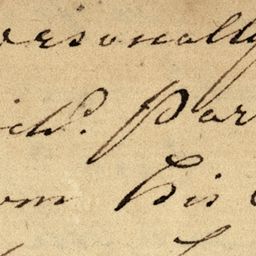 ersonally
ichd. Par
om his